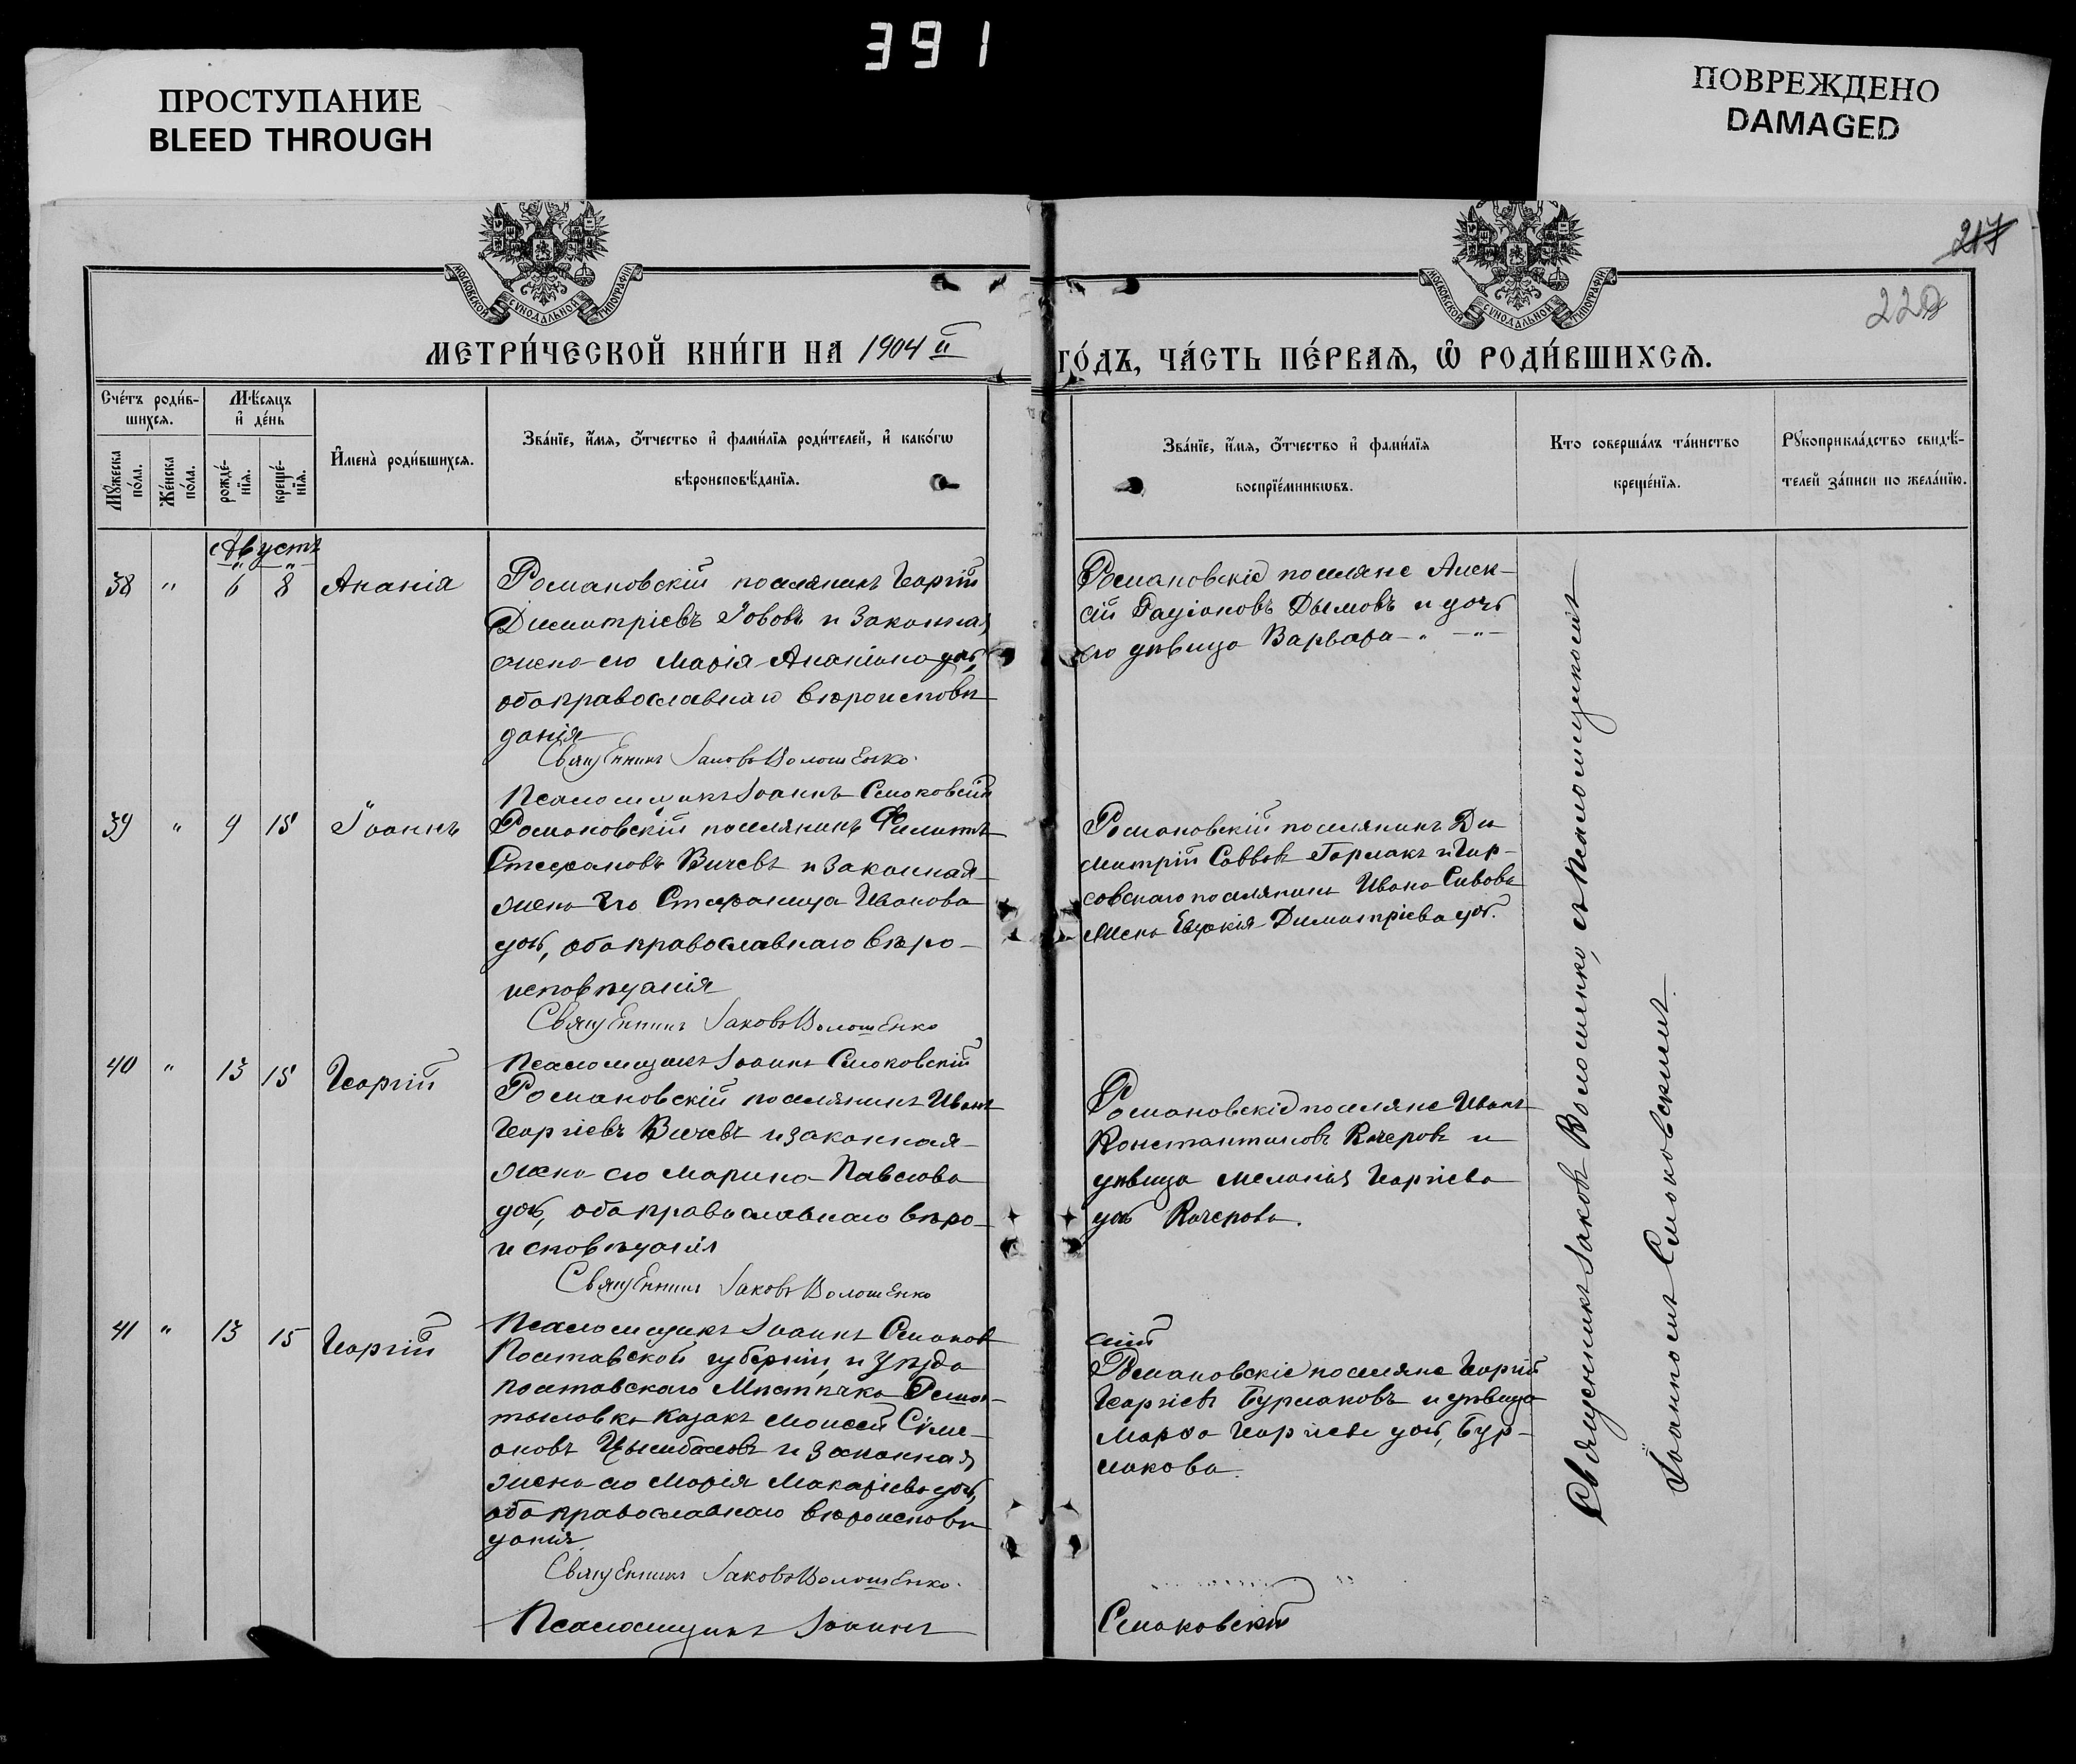 391
ПРОСТУПАНИЕ
BLEED THROUGH
ПОВРЕЖДЕНО
DAMAGED
217
МОСКОВСКОЙ СѴНОДАЛЬНОЙ ТИПОГРАФІИ
МОСКОВСКОЙ СѴНОДАЛЬНОЙ ТИПОГРАФІИ
МЕТРИ́ЧЕСКОЙ КНИ́ГИ НА 1904 й
ГО́ДЪ, ЧА́СТЬ ПЕ́РВАѦ, Ѡ҆ РОДИ́ВШИХСѦ.
Сче́тъ роди́в-
шихсѧ.
Мꙋ́жеска по́ла.
Же́нска по́ла.
Мѣ́сѧцъ
и҆ де́нь
рожде́-
нїѧ.
креще́-
нїѧ.
И҆мена̀ роди́вшихсѧ.
Зва́нїе, и҆́мѧ, ѻ҆́тчество и҆ фами́лїѧ роди́телей, и҆ како́гѡ
вѣроисповѣ́данїѧ.
Зва́нїе, и҆́мѧ, ѻ҆́тчество и҆ фами́лїѧ
воспрїе́мникѡвъ.
Кто соверша́лъ та́инство
креще́нїѧ.
Рꙋкоприкла́дство свидѣ́-
телей за́писи по жела́нїю.
Августъ
38 " 6 8 Ананія
Романовскій поселянинъ Георгій
Димитріевъ Іововъ и законная
жена его Марія Ананіина доч.,
оба православнаго вѣроисповѣ
данія
Священникъ Іаковъ Волошенко
Псаломщикъ Іоаннъ Смоковскій
Романовскіе поселяне Алек-
сій Гаціоновъ Дымовъ и дочь
его дѣвица Варвара
39 " 9 15 Іоаннъ
Романовскій поселянинъ Филиппъ
Стефановъ Вичевъ и законная
жена его Стефанида Иванова
доч., оба православнаго вѣро-
исповѣданія
Священникъ Іаковъ Волошенко
Псаломщикъ Іоаннъ Смоковскій
Романовскій поселянинъ Ди
митрій Саввовъ Гормакъ и
совскаго поселянина Ивана
жена Евдокія Димитріева доч.
40 " 13 15 Георгій
Романовскій поселянинъ Иванъ
Георгіевъ Вичевъ и законная
жена его Марина Павлова
доч., оба православнаго вѣро-
исповѣданія
Священникъ Іаковъ Волошенко
Псаломщикъ Іоаннъ Смоков
скій
Романовскіе поселяне Иванъ
Константиновъ Качеровъ и
дѣвица Меланія Георгіева
доч. Качерова.
41 " 13 15 Георгій
Полтавской губерніи, и уѣзда
полтавскаго Мѣстечка
казакъ Моисей Симе-
оновъ Цымбаловъ и законная
жена его Марія Макаріева доч.,
оба православнаго вѣроисповѣ
данія
Священникъ Іаковъ Волошенко.
Псаломщикъ Іоаннъ
Смоковскій
Романовскіе поселяне Георгій
Георгіевъ Бурлаковъ и дѣвица
Марфа Георгіева доч., Бур-
лакова.
Священникъ Іаковъ Волошенко, съ Псаломщикомъ
Іоанномъ Смоковскимъ.